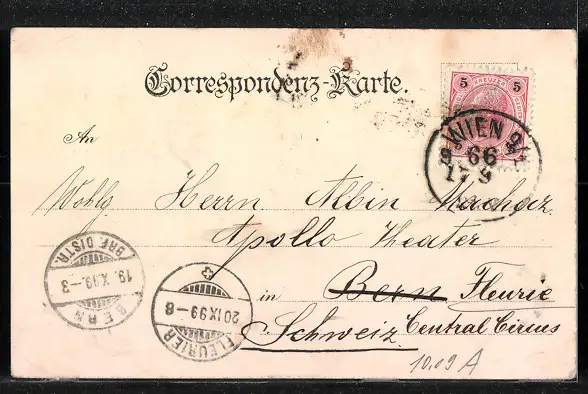 Correspondenz-Karte.
5 KREUZER 5
WIEN 9/1
66
17 9
An
Wohlg. Herrn Albin
Apollo Theater
in Bern Fleurie
Schweiz Central Circus
BRF. DISTR.
19. X. 99.–3
BERN
20 IX 99–8
FLEURIER
10.09 A